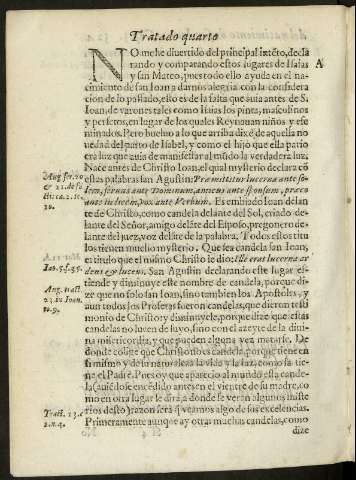 Tratado quarto
NO me he divertido del principal intẽto, decla
rando y comparando estos lugares de Isaias A
y san Mateo, pues todo ello ayuda en el na-
cimiento de san Ioan a darnos alegria con la considera
cion de lo passado, esto es de la falta que auia antes de S.
Ioan, de varones tales como Isaias los pinta, masculinos
y perfetos, en lugar de los quales Reynauan niños y efe
minados. Pero bueluo a lo que arriba dixe de aquella no
uedad del parto de Isabel, y como el hijo que ella pario
era luz que auia de manifestar al mũdo la verdadera luz.
Nace antes de Christo, el qual mysterio declara cõ
estas palabras san Agustin: Præmittitur lucerna ante so
lem, seruus ante Dominum, amicus ante sponsum, præco
ante iudicem, vox ante Verbum. Es embiado Ioan delan
te de Christo, como candela delante del Sol, criado de-
lante del Señor, amigo delãte del Esposo, pregonero de-
lante del juez, voz delãte de la palabra. Todos estos titu
los tienen mucho mysterio. Que sea candela san Ioan,
es titulo que el mismo Christo le dio: Ille erat lucerna ar
dens & lucens. San Agustin declarando este lugar es-
tiende y diminuye este nombre de candela, porque di-
ze que no solo san Ioan, sino tambien los Apostoles, y
aun todos los Profetas fueron candelas, que dieron testi
monio de Christo y diminuyele, porque dize que estas
candelas no lucen de suyo, sino con el azeyte de la diui-
na misericordia, y que pueden alguna vez matarse. De
donde colige que Christo no es candela, porque tiene en
si mismo y de su naturaleza la vida y la luz, como la tie-
ne el Padre. Pues oy que aparecio al mundo esta cande-
la (auiẽdose encẽdido antes en el vientre de su madre, co
mo en otra lugar se dirà, a donde se veran algunos miste
rios desto) razon serà q̃ veamos algo de sus excelencias.
Primeramente aunque ay otras muchas candelas, como
dize
Aug. ser. 20
& 21. de sã
ctis to.
Ioan. 5. f. 35.
Ang. tract.
23. in Ioan.
to. 9.
Tract. 23. c